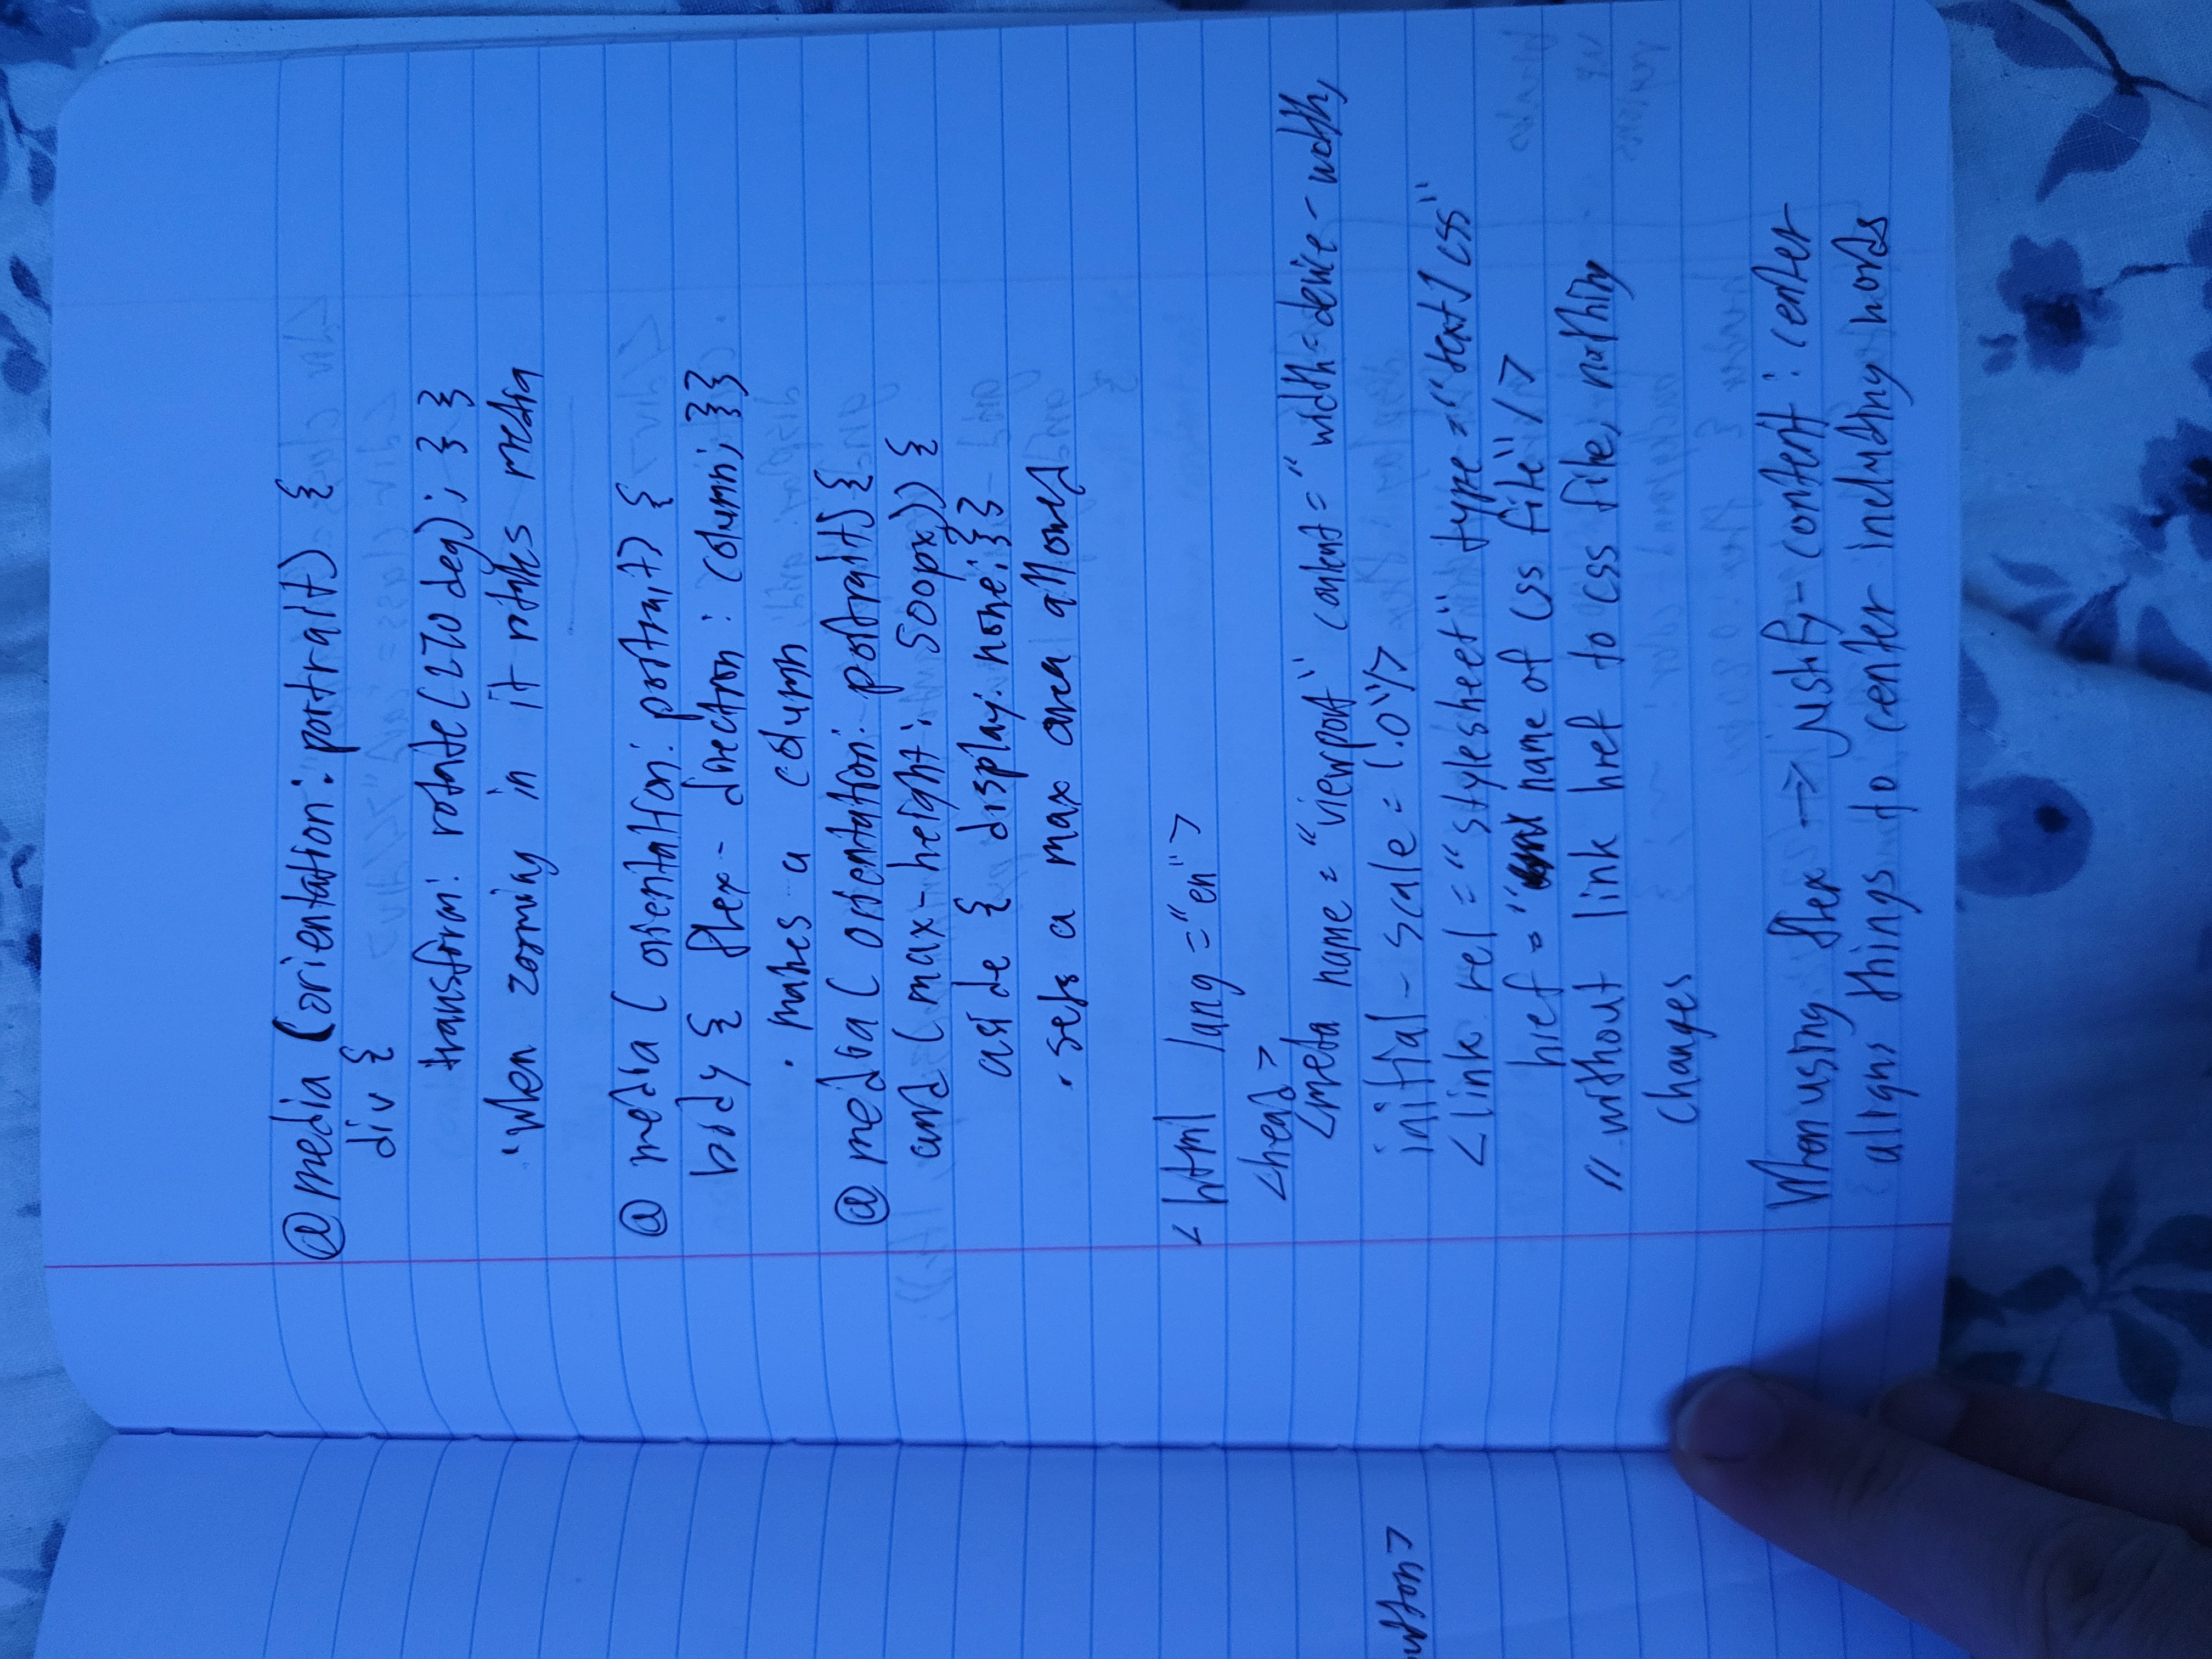 @media (orientation: portrait) {
div {
transform: rotate(270deg); } }
·when zooming in it rotates media
@ media ( orientation: portrait) {
body { flex-direction: column; }}
· makes a column
@ media ( orientation: portrait) {
and (max-height: 500px)) {
aside { display: none; }}
· sets a max area allowed
<html lang="en">
<head>
<meta name="viewport" content="width=device-width,
initial-scale=1.0"/>
<link rel="stylesheet" type="text/css"
href="name of css file"/>
// without link href to css file, nothing
changes
When using flex -> justify-content: center
aligns things to center including words
utton>